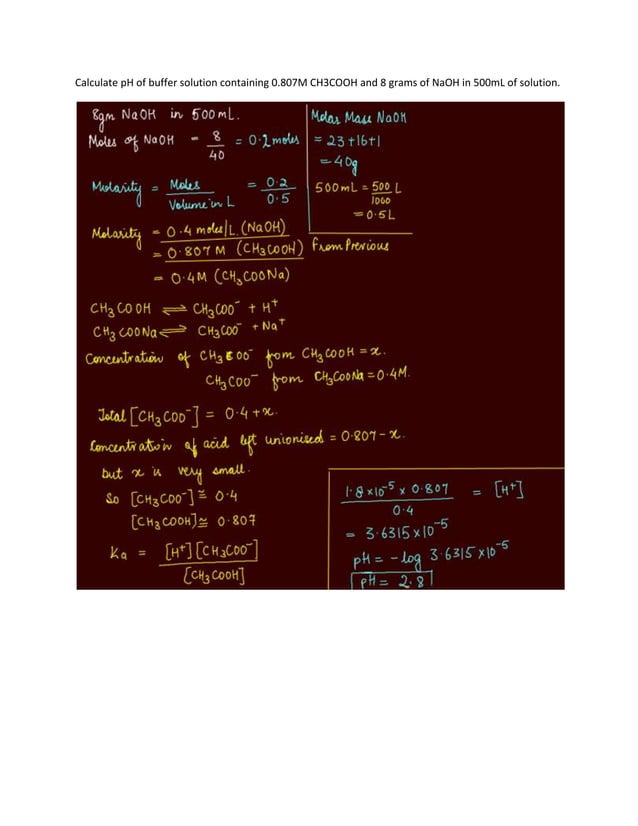 Calculate pH of buffer solution containing 0.807M CH3COOH and 8 grams of NaOH in 500mL of solution.
8gm NaOH in 500mL.
Moles of NaOH = 8/40 = 0.2 moles
Molarity = Moles/Volume in L = 0.2/0.5
Molarity = 0.4 moles/L. (NaOH)
= 0.807 M (CH₃COOH) from Previous
= 0.4M (CH₃COONa)
Molar Mass NaOH
= 23+16+1
= 40g
500mL = 500/1000 L
= 0.5L
CH₃COOH ⇌ CH₃COO⁻ + H⁺
CH₃COONa ⇌ CH₃COO⁻ + Na⁺
Concentration of CH₃COO⁻ from CH₃COOH = x.
CH₃COO⁻ from CH₃COONa = 0.4M.
Total [CH₃COO⁻] = 0.4+x.
Concentration of acid left unionised = 0.807-x.
but x is very small.
So [CH₃COO⁻] ≅ 0.4
[CH₃COOH] ≅ 0.807
Ka = [H⁺][CH₃COO⁻]/[CH₃COOH]
1.8×10⁻⁵ × 0.807/0.4 = [H⁺]
= 3.6315×10⁻⁵
pH = -log 3.6315×10⁻⁵
pH = 2.81